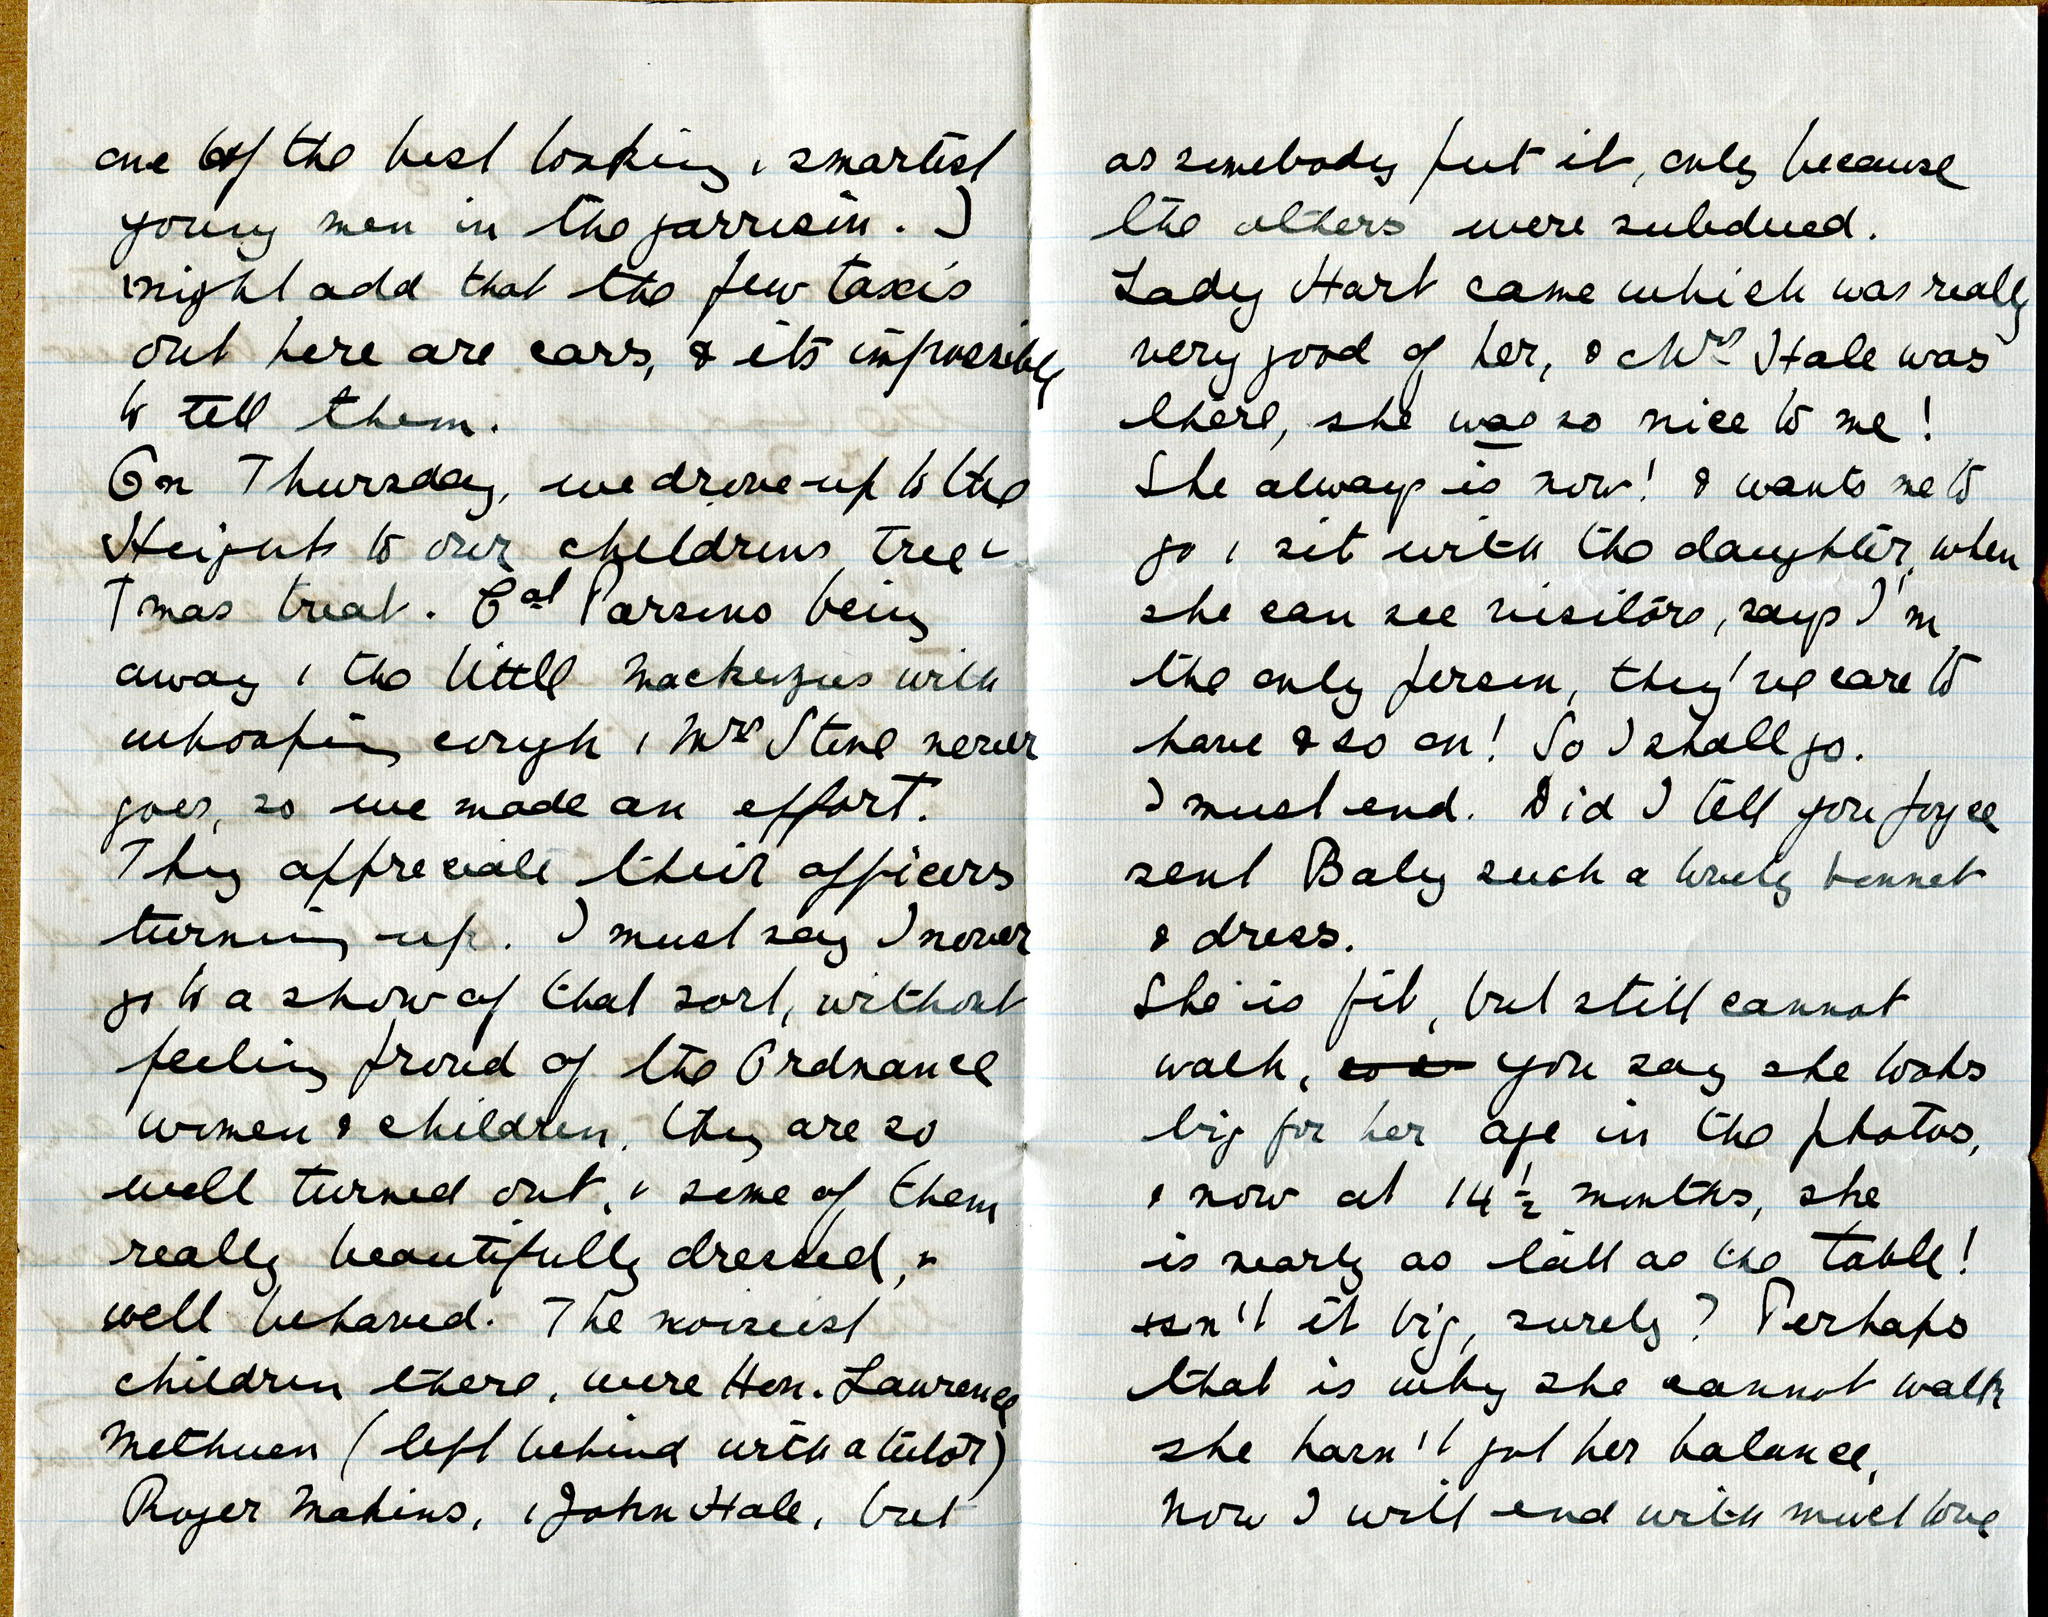 one of the best looking & smartest
young men in the garrison. I
might add that the few taxis
out here are cars, & its impossible
to tell them.
On Thursday, we drove up to the
Heights to our childrens tree &
Tmas treat. Col Parsons being
away & the little Mackenzies with
whooping cough & Mrs Stone never
goes, so we made an effort.
They appreciate their officers
turning up. I must say I never
go to a show of that sort, without
feeling proud of the Ordnance
women & children, they are so
well turned out, & some of them
really beautifully dressed, &
well behaved. The noiseist
children there, were Hon. Lawrence
Methuen (left behind with a tutor)
Roger Makins, & John Hale, but
as somebody put it, only because
the others were subdued.
Lady Hart came which was really
very good of her, & Mrs Hale was
there, she was so nice to me!
She always is now! & wants me to
go & sit with the daughter, when
she can see visitors, says I'm
the only person, they've care to
have & so on! So I shall go.
I must end. Did I tell you Joyce
sent Baby such a lovely bonnet
& dress.
She is fit, but still cannot
walk, you say she looks
big for her age in the photos,
& now at 14½ months, she
is nearly as tall as the table!
isn't it big, surely? Perhaps
that is why she cannot walk
she hasn't got her balance,
Now I will end with much love